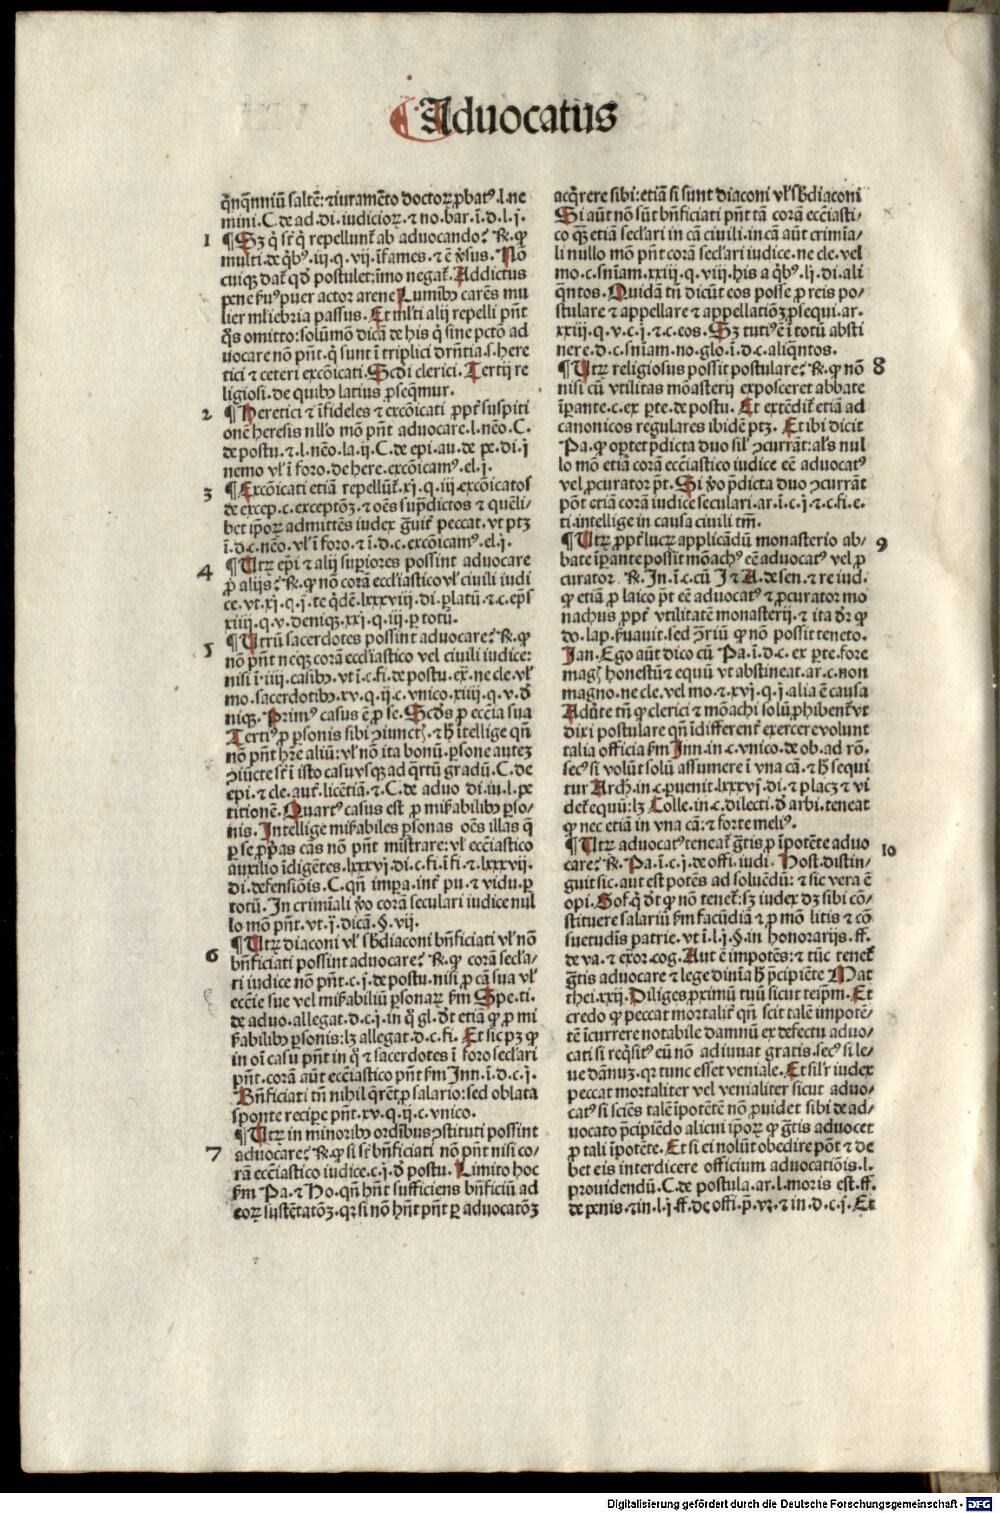 Aduocatus
q̄nq̄nniū saltē: ⁊ iuramēto doctoꝝ ꝓbatꝰ. l. ne
mini. C. de ad. di. iudicioꝝ. ⁊ no. bar. ī. d. l. j.
1 ¶ Sꝫ q̇ sr̄t q̇ repellunt̄ ab aduocando? R. ꝙ
multi. de q̇bꝰ. iij. q. vij. īfames. ⁊ ē v̄sus. Nō
cuiqꝫ dat̄ qd̄ postulet: īmo negat̄. Addictus
pene s̄uꝰ puer actor arene Luminibꝫ carēs mu
lier mliebria passus. Et ml̄ti alij repelli pn̄t
q̄s omitto: solūmō dicā de his q̇ sine pctō ad
uocare nō pn̄t. q̇ sunt ī triplici drn̄tia. s. here
tici ⁊ ceteri excōicati. Scd̄i clerici. Tertij re
ligiosi. de quibꝫ latius ꝓseq̄mur.
2 ¶ Heretici ⁊ īfideles ⁊ excōicati ꝓpt̄ suspiti
onē heresis nll̄o mō pn̄t aduocare. l. nēo. C.
de postu. ⁊. l. nēo. la. ij. C. de epi. au. de pe. di. j
nemo vl̄ ī foro. de here. excōicamꝰ. el. j.
3 ¶ Excōicati etiā repellūt̄. xj. q. iij. excōicatos
de excep. c. exceptōꝫ. ⁊ oēs sup̄dictos ⁊ quēli-
bet ip̄oꝝ admittēs iudex ḡuit̄ peccat. vt ptꝫ
ī. d. c. nēo. vl̄ ī foro. ⁊ ī. d. c. excōicamꝰ. el. j.
4 ¶ Utꝝ ep̄i ⁊ alij suꝑiores possint aduocare
ꝓ alijs? R. ꝙ nō corā eccl̄iastico vl̄ ciuili iudi
ce. vt. xj. q. j. te q̇dē. lxxxviij. di. ꝑlatū. ⁊ c. ep̄s
xiiij. q. v. deniqꝫ. xxj. q. iij. ꝑ totū.
5 ¶ Utrū sacerdotes possint aduocare? R. ꝙ
nō pn̄t neqꝫ corā eccl̄iastico vel ciuili iudice:
nisi ī. iiij. casibꝫ. vt ī. c. fi. de postu. ex̄. ne cle. vl̄
mo. sacerdotibꝫ. xv. q. ij. c. vnico. xiiij. q. v. d̄
niqꝫ. Primꝰ casus ē ꝓ se. Scd̄s ꝓ ecc̄ia sua
Tertiꝰ ꝓ ꝑsonis sibi ↄiunctꝭ. ⁊ h̄ ītellige qn̄
nō pn̄t hr̄e aliū: vl̄ nō ita bonū. ꝑsone autez
ↄiūcte sr̄t ī isto casu vsqꝫ ad q̄rtū gradū. C. de
epi. ⁊ cle. aut̄. licētiā. ⁊. C. de aduo di. iu. l. pe
titionē. Quartꝰ casus est ꝓ mis̄abilibꝫ ꝑso-
nis. Intellige mis̄abiles ꝑsonas oēs illas q̄
ꝑ se ꝓp̄as cās nō pn̄t mistrare: vl̄ ecc̄iastico
auxilio īdigētes. lxxxvj. di. c. fi. ī fi. ⁊. lxxxvij.
di. defensiōis. C. qn̄ impa. int̄ pu. ⁊ vidu. ꝑ
totū. In crimīali v̄o corā seculari iudice nul
lo mō pn̄t. vt. j. dicā. §. vij.
6 ¶ Utꝝ diaconi vl̄ sb̄diaconi bn̄ficiati vl̄ nō
bn̄ficiati possint aduocare? R. ꝙ corā secl̄a-
ri iudice nō pn̄t. c. j. de postu. nisi ꝓ cā sua vl̄
ecc̄ie sue vel mis̄abiliū ꝑsonaꝝ s̄m Spe. ti.
de aduo. allegat. d. c. j. in q̇ gl̄. d̄t etiā ꝙ ꝓ mi
s̄abilibꝫ ꝑsonis: lꝫ allegat. d. c. fi. Et sic pꝫ ꝙ
in oī casu pn̄t in q̇ ⁊ sacerdotes ī foro secl̄ari
pn̄t. corā aūt ecc̄iastico pn̄t s̄m Inn. ī. d. c. j.
Bn̄ficiati tn̄ nihil q̄rēt ꝓ salario: sed oblata
sponte recipe pn̄t. xv. q. ij. c. vnico.
7 ¶ Utꝝ in minoribꝫ ordībus ↄstituti possint
aduocare? R. ꝙ si sr̄t bn̄ficiati nō pn̄t nisi co-
rā ecc̄iastico iudice. c. j. d̄ postu. Limito hoc
s̄m Pa. ⁊ Ho. qn̄ hn̄t sufficiens bn̄ficiū ad
eoꝝ sustētatōꝫ. qꝛ si nō hn̄t pn̄t ꝑ aduocatōꝫ
acq̄rere sibi: etiā si sunt diaconi vl̄ sb̄diaconi
Si aūt nō sūt bn̄ficiati pn̄t tā corā ecc̄iasti-
co qꝫ etiā secl̄ari in cā ciuili. in cā aūt crimīa-
li nullo mō pn̄t corā secl̄ari iudice. ne cle. vel
mo. c. sn̄iam. xxiij. q. viij. his a q̇bꝰ. lj. di. ali
q̄ntos. Quidā tn̄ dicūt eos posse ꝓ reis po-
stulare ⁊ appellare ⁊ appellatiōꝫ ꝓsequi. ar.
xxiij. q. v. c. j. ⁊. c. eos. Sꝫ tutiꝰ ē ī totū absti
nere. d. c. sn̄iam. no. glo. ī. d. c. aliq̄ntos.
¶ Utꝝ religiosus possit postulare? R. ꝙ nō 8
nisi cū vtilitas mōasterij exposceret abbate
īꝑante. c. ex ꝑte. de postu. Et extēdit̄ etiā ad
canonicos regulares ibidē ptꝫ. Et ibi dicit
Pa. ꝙ oꝑtet p̄dicta duo sil̄ ↄcurrāt: al̄s nul
lo mō etiā corā ecc̄iastico iudice eē aduocatꝰ
vel ꝓcurator p̄t. Si v̄o p̄dicta duo ↄcurrāt
pōt etiā corā iudice seculari. ar. ī. c. j. ⁊. c. fi. e.
ti. intellige in causa ciuili tm̄.
¶ Utꝝ ꝓpt̄ lucꝝ applicādū monasterio ab- 9
bate īꝑante possit mōachꝰ eē aduocatꝰ vel ꝓ
curator. R. In. ī. c. cū I ⁊ A. de sen. ⁊ re iud.
ꝙ etiā ꝓ laico p̄t eē aduocatꝰ ⁊ ꝓcurator mo
nachus ꝓpt̄ vtilitatē monasterij. ⁊ ita d̄r ꝙ
do. lap. s̄uauit. sed ↄ̄riū ꝙ nō possit teneto.
Ian. Ego aūt dico cū Pa. ī. d. c. ex ꝑte. fore
magꝭ honestū ⁊ equū vt abstineat. ar. c. non
magno. ne cle. vel mo. ⁊. xvj. q. j. alia ē causa
Adūte tn̄ ꝙ clerici ⁊ mōachi solū ꝓhibent̄ vt
dixi postulare qn̄ īdifferent̄ exercere volunt
talia officia s̄m Inn. in. c. vnico. de ob. ad rō.
secꝰ si volūt solū assumere ī vna cā. ⁊ h̄ sequi
tur Arch. in. c. ꝑuenit. lxxxvj. di. ⁊ placꝫ ⁊ vi
det̄ equū: lꝫ Colle. in. c. dilecti. d̄ arbi. teneat
ꝙ nec etiā in vna cā: ⁊ forte meliꝰ.
¶ Utꝝ aduocatꝰ teneat̄ gr̄tis ꝓ īpotēte aduo 10
care? R. Pa. ī. c. j. de offi. iudi. Host. distin-
guit sic. aut est potēs ad soluēdū: ⁊ sic vera ē
opi. Gof. q̇ d̄t ꝙ nō tenet̄: sꝫ iudex dꝫ sibi cō-
stituere salariū s̄m facūdiā ⁊ ꝓ mō litis ⁊ cō
suetudīs patrie. vt ī. l. j. §. in honorarijs. ff.
de va. ⁊ exor. cog. Aut ē impotēs: ⁊ tūc tenet̄
gr̄tis aduocare ⁊ lege diuīa h̄ p̄cipiēte Mat
thei. xxij. Diliges ꝓximū tuū sicut teip̄m. Et
credo ꝙ peccat mortalit̄ qn̄ scit talē impotē-
tē īcurrere notabile damnū ex defectu aduo-
cati si req̇sitꝰ eū nō adiuuat gratis. secꝰ si le-
ue dānuꝫ. qꝛ tunc esset veniale. Et sil̄r iudex
peccat mortaliter vel venialiter sicut aduo-
catꝰ si sciēs talē īpotētē nō ꝓuidet sibi de ad-
uocato p̄cipiēdo alicui ip̄oꝝ ꝙ gr̄tis aduocet
ꝓ tali īpotēte. Et si ei nolūt obedire pōt ⁊ de
bet eis interdicere officium aduocatiōis. l.
prouidendū. C. de postula. ar. l. moris est. ff.
de penis. ⁊ in. l. j. ff. de offi. p̄. vꝛ. ⁊ in. d. c. j. Et
Digitalisierung gefördert durch die Deutsche Forschungsgemeinschaft - DFG